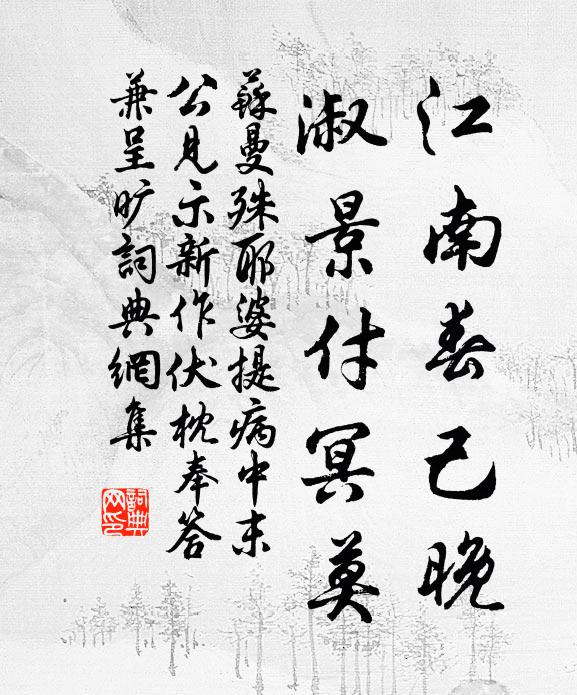 江南春已晚
淑景付冥莫
蘇曼殊耶婆提病中末
公見示新作伏枕奉答
兼呈曠詞典網集
詞典网印